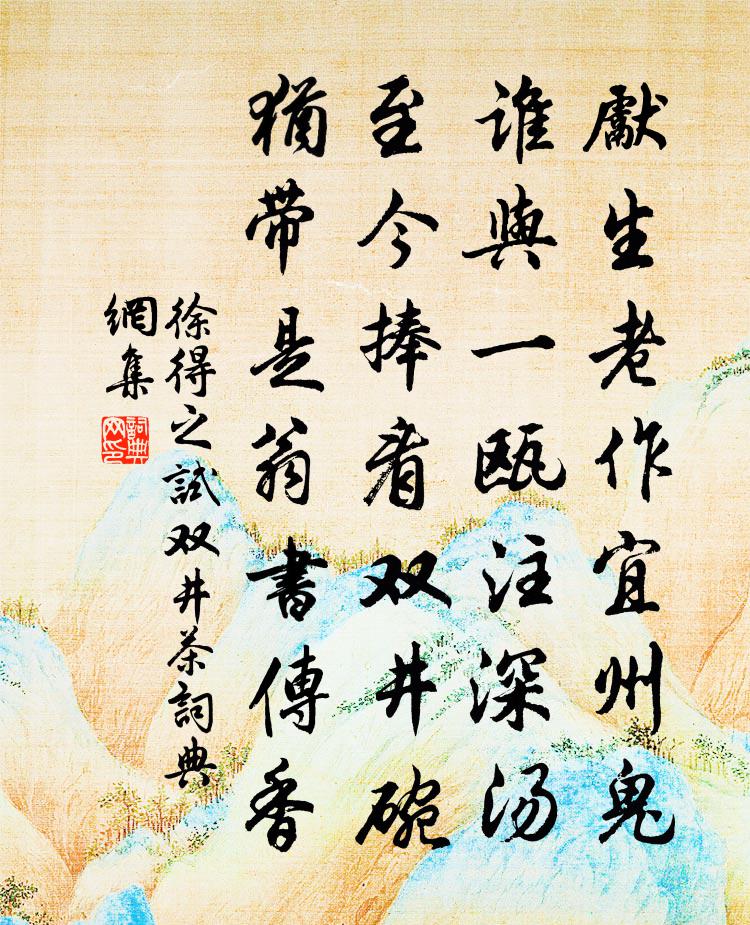 獻生老作宜州鬼
誰與一瓯注深汤
至今捧看双井碗
猶帶是翁書傳香
徐得之試双井茶詞典
網集
詞典
网印